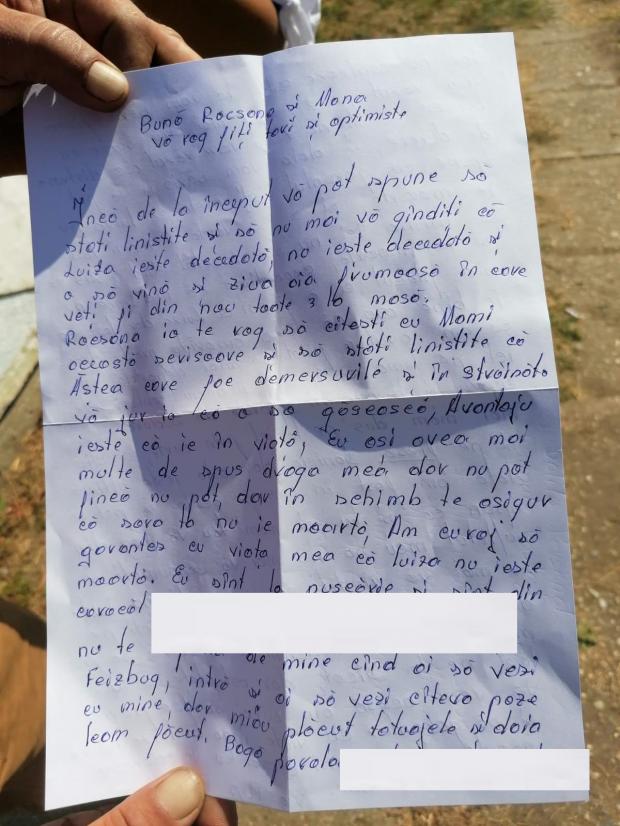 Bună Rocsana si Mona
vă rog fiți tari și optimiste
Încă de la început vă pot spune să
stati linistite si să nu mai vă ginditi că
Luiza ieste decadată, nu ieste decadată si
o să vină si ziua aia frumoasă în care
veti fi din nou toate 3 la masă.
Racsana ia te rog să citesti cu Mami
această serisoare si să stati linistite că
Astea care foc demersurile si în străinăta
vă jur ia că o să găsească, Avantaju
ieste că ie în viată, Eu asi avea mai
multe de spus draga mea dar nu pot
fincă nu pot, dar în schimb te asigur
că sora ta nu ie moartă, Am curaj să
garantez cu viata mea că luiza nu ieste
moartă. Eu sînt la puscărie si sînt din
caracăl
nu te de mine cînd oi să vezi
Feizbug, intră si oi să vezi cîteva poze
cu mine dar miau plăcut tatuajele si daia
leam făcut. Bagă parola